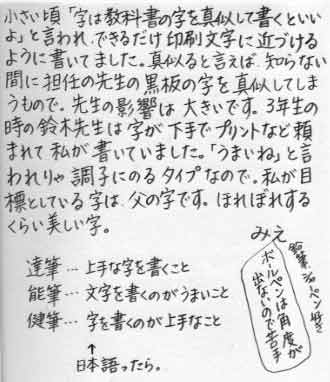 小さい頃「字は教科書の字を真似して書くといい
よ」と言われ、できるだけ印刷文字に近づける
ように書いてました。真似ると言えば、知らない
間に担任の先生の黒板の字を真似してしま
うもので、先生の影響は大きいです。3年生の
時の鈴木先生は字が下手でプリントなど頼
まれて私が書いていました。「うまいね」と言
われりゃ調子にのるタイプなので。私が目
標としている字は、父の字です。ほれぼれする
くらい美しい字。
みえ
達筆…上手な字を書くこと
能筆…文字を書くのがうまいこと
健筆…字を書くのが上手なこと
↑
日本語ったら。
鉛筆、シャーペン好き
ボールペンは角度が
出ないので苦手